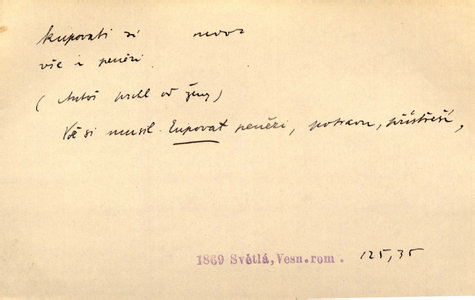 kupovati si
vše i peníze
(Antoš prchl od ženy)
Vše si musil kupovat penězi, potravu, přístřeší,
1869 Světlá, Vesn.rom. 125,35